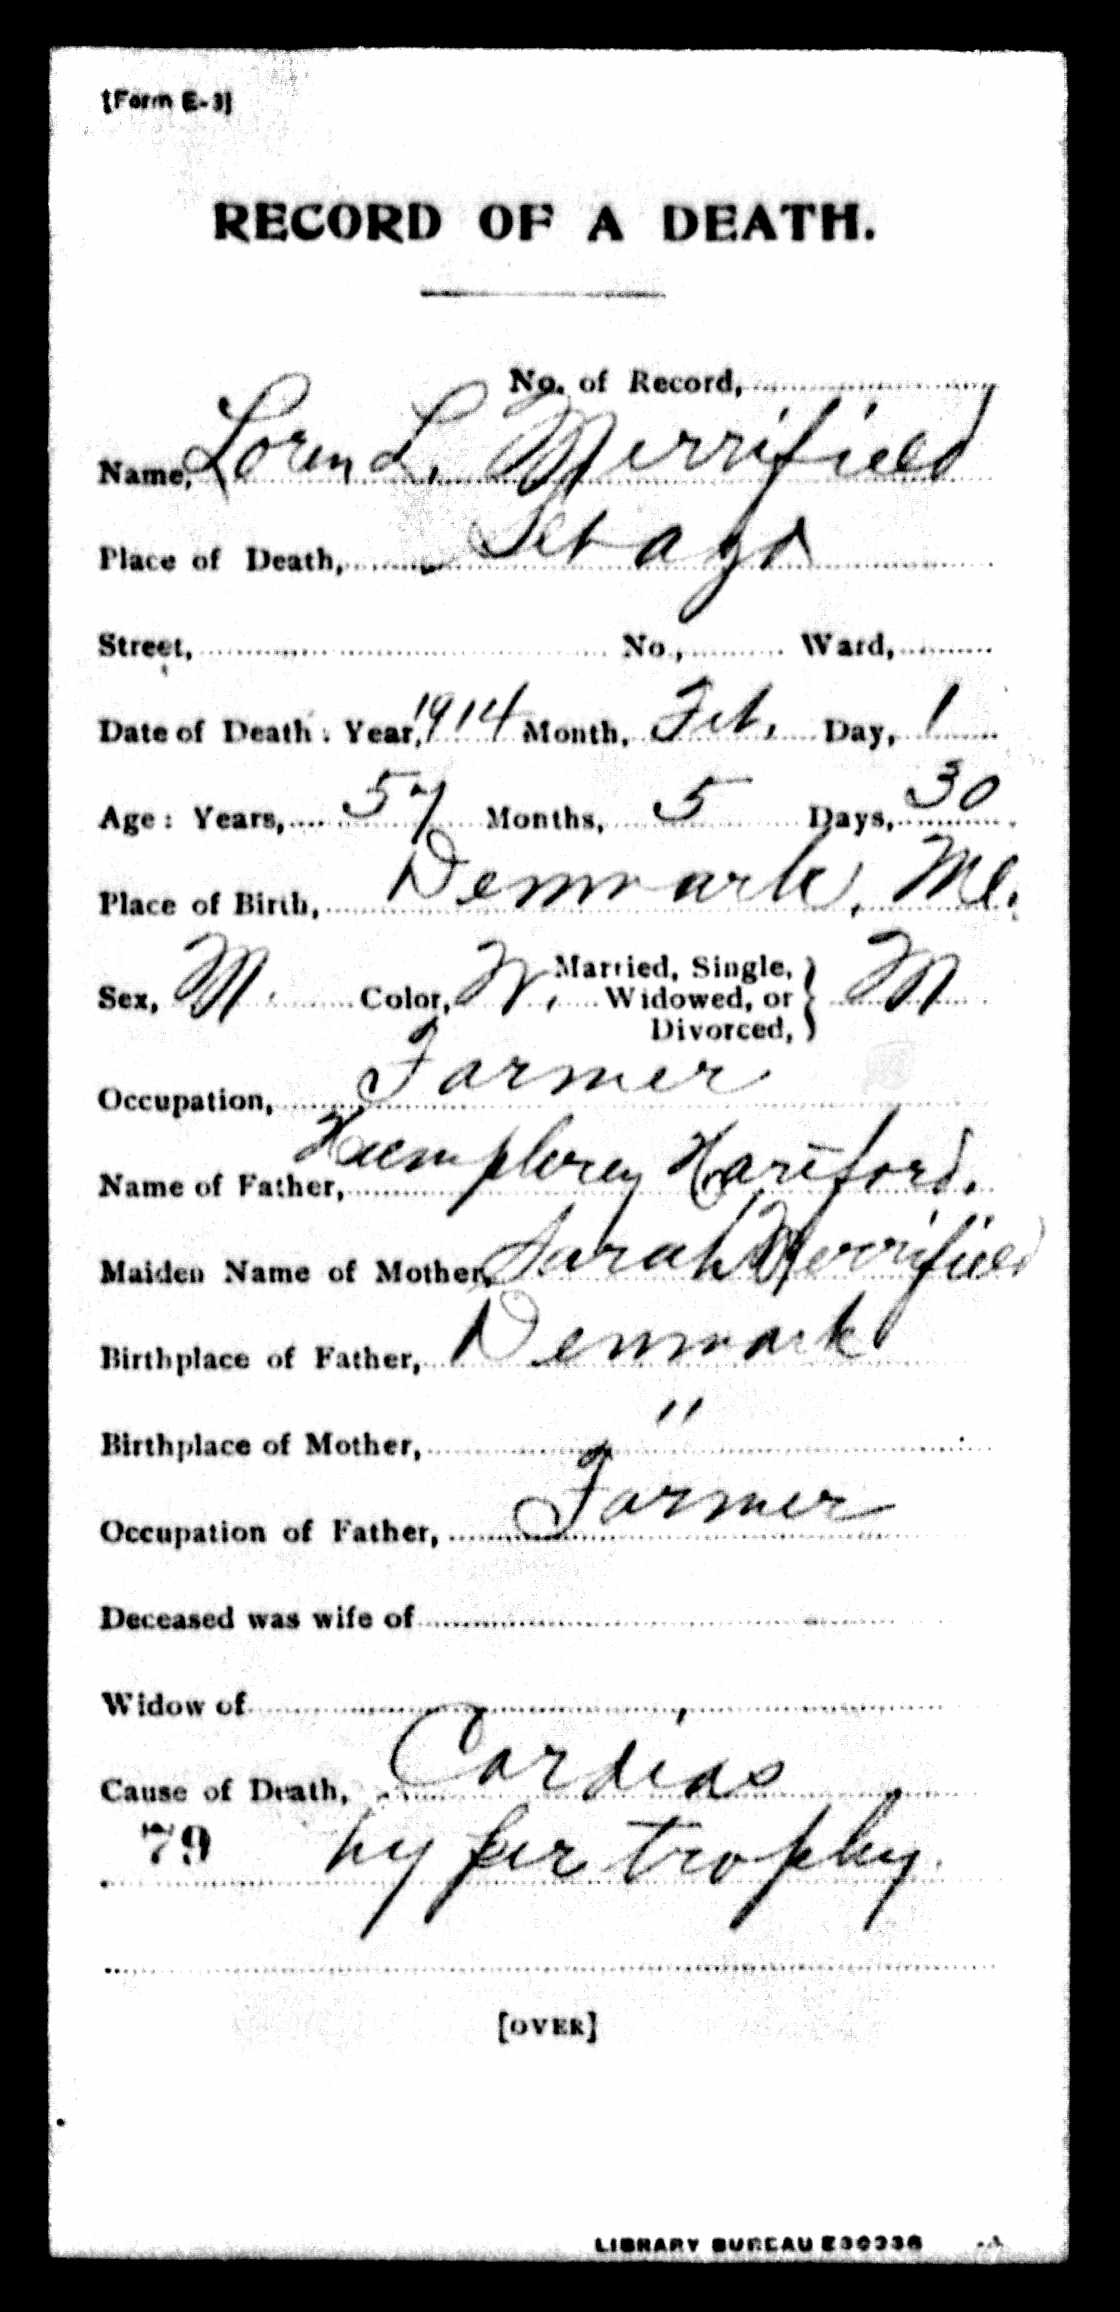 [Form E-3]
RECORD OF A DEATH.
No. of Record,
Name, Loren L. Merrifield
Place of Death, Sebago
Street, No., Ward,
Date of Death: Year, 1914 Month, Feb. Day, 1
Age: Years, 57 Months, 5 Days, 30
Place of Birth, Denmark, Me.
Sex, M. Color, W. Married, Single, Widowed, or Divorced, M
Occupation, Farmer
Name of Father, Humphrey Hartford.
Maiden Name of Mother, Sarah Merrifield
Birthplace of Father, Denmark
Birthplace of Mother, "
Occupation of Father, Farmer
Deceased was wife of
Widow of
Cause of Death, Cardiac
79 hypertrophy.
[OVER]
LIBRARY BUREAU